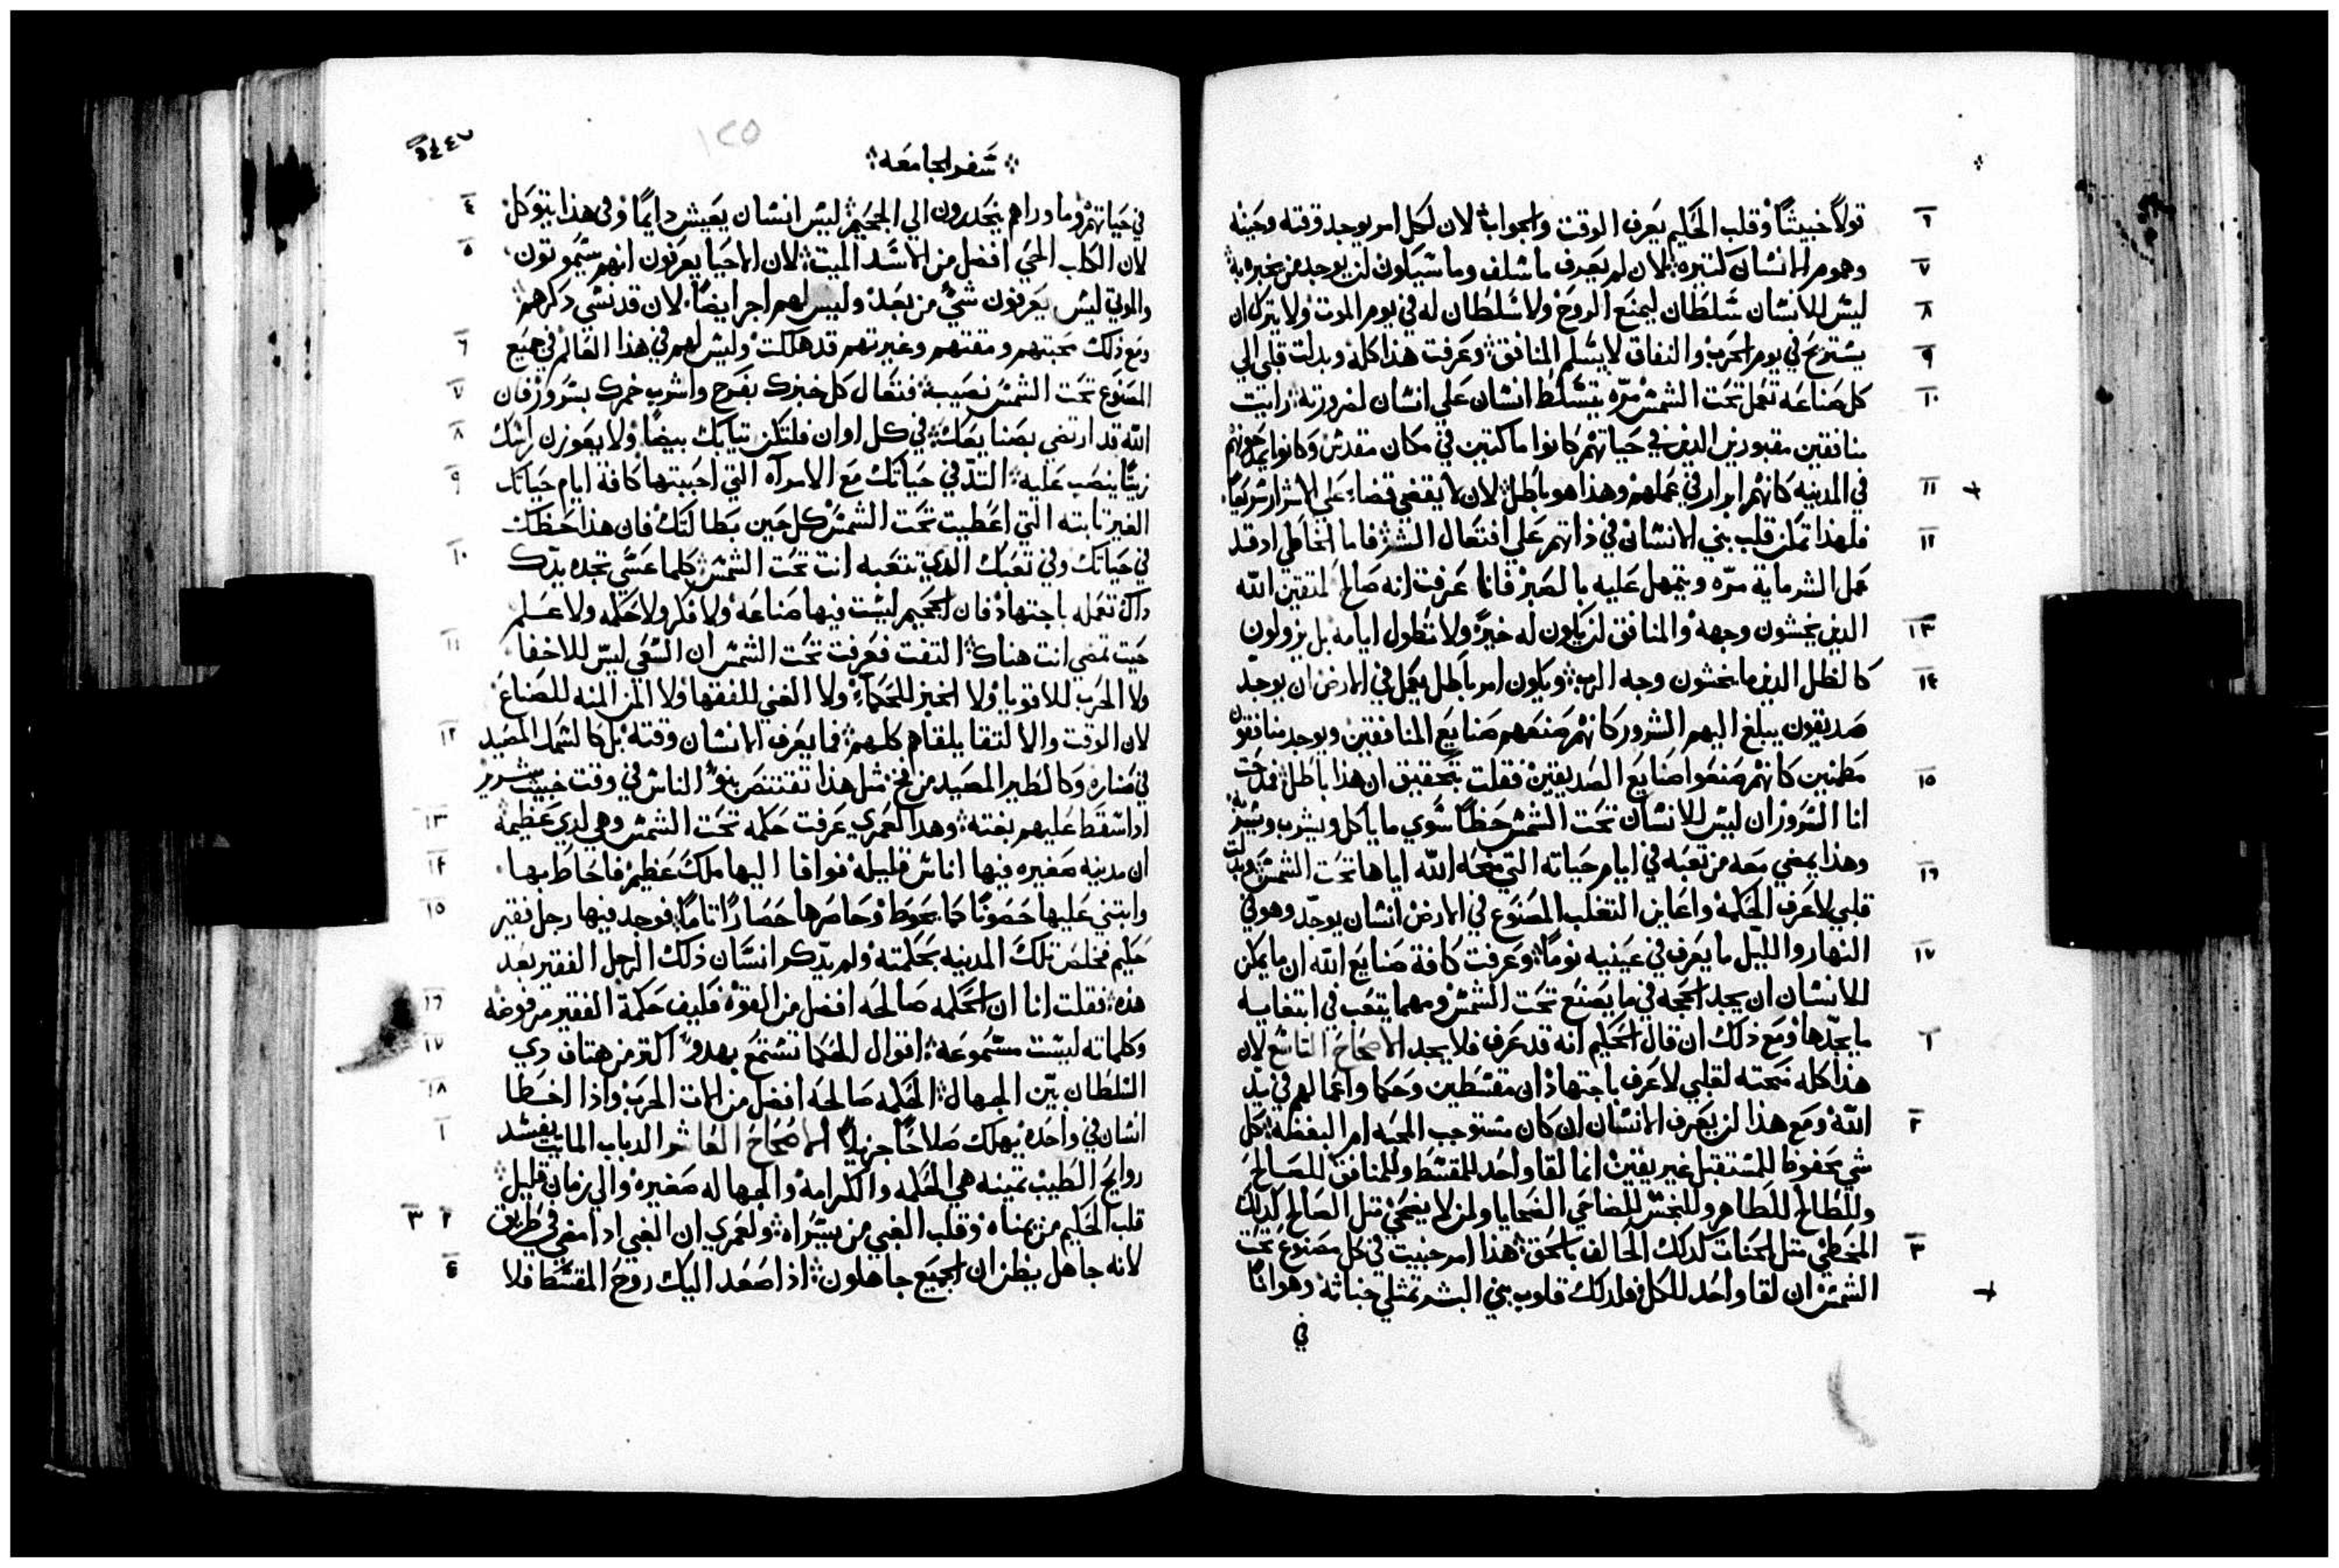 قولاً خبيثاً وقلب الحكيم يعرف الوقت والجواب لان لكل امر يوجد وقته وحينه
وهموم الانسان كتيره لان لم يعرف ما سلف وما سيكون لن يوجد من يخبره به
ليس للانسان سلطان ليمنع الروح ولا سلطان له في يوم الموت ولا يترك ان
يستريح في يوم الحرب والنفاق لا يسلم المنافق وعرفت هذا كله وبدلت قلبي الي
كل صناعه تعمل تحت الشمس مرّه يتسلط انسان علي انسان لضرورته رايت
منافقين مقبورين الذين في حياتهم كانوا ماكتين في مكان مقدس وكانوا يمدحونهم
في المدينه كانهم ابرار في عملهم وهذا هو باطل لان لا يقضي قضاء علي الاشرار سريعاً
فلهذا تمكن قلب بني الانسان في ذاتهم علي افتعال الشر فاما الخاطي اد قد
عمل الشر ماية مرّه ويتمهل عليه بالصبر فانا عرفت انه صالح لمتقين الله
الدين يخشون وجهه والمنافق لن يكون له خير ولا تطول ايامه بل يزولون
كالظل الدين ما يخشون وجه الرب ويكون امر باطل يعمل في الارض ان يوجد
صديقون يبلغ اليهم الشرور كانهم صنعهم صنايع المنافقين ويوجد منافقون
مطمنين كانهم صنعوا صنايع الصديقين فقلت بتحقيق ان هذا باطل فمدحت
انا السرور ان ليس للانسان تحت الشمس حظاً سوي ما ياكل ويشرب ويسر
وهذا يمضي معه من تعبه في ايام حياته التي منحه الله اياها تحت الشمس وبدلت
قلبي لاعرف الحكمه واعاين التغلب المصنوع في الارض انسان يوجد وهو في
النهار والليل ما يعرف في عينيه نوماً وعرفت كافة صنايع الله ان ما يمكن
للانسان ان يجد الحجه في ما يصنع تحت الشمس ومهما يتعب في ابتغايه
ما يجدها ومع ذلك ان قال الحكيم انه قد عرف فلا يجد الاصحاح التاسع لان
هذا كله منحته لقلبي لاعرف باجتهاد ان مقسطين وحكما واعمالهم في يد
الله ومع هذا لن يعرف الانسان ان كان مستوجب المحبه ام البغضه كل
شي محفوظ للمستقبل غير يقين انما لقا واحد للمقسط وللمنافق للصالح
وللطالح للطاهر وللنجس للضاحي الضحايا ولمن لا يضحي متل الصالح كدلك
المخطي متل الحنات كدلك الحالف بالحق هذا امر خبيت في كل مصنوع تحت
الشمس ان لقا واحد للكل فلدلك قلوب بني البشر تمتلي خباثه وهواناً
في
سفر الجامعه
١٢٥
٤٤٧
في حياتهم وما وراهم ينحدرون الي الجحيم ليس انسان يعيش دايماً وفي هذا يتوكل
لان الكلب الحي افضل من الاسد الميت لان الاحيا يعرفون انهم سيموتون
والموتي ليس يعرفون شي من بعد وليس لهم اجر ايضاً لان قد نسي دكرهم
ومع ذلك محبتهم ومقتهم وغيرتهم قد هلكت وليس لهم في هذا العالم في جميع
المصنوع تحت الشمس نصيب فتعال كل خبزك بفرح واشرب خمرك بسرور فان
الله قد ارتضي بصنايعك في كل اوان فلتكن تيابك بيضاً ولا يعوزن راسك
زيتاً ينصب عليه التد في حياتك مع الامرآه التي احببتها كافة ايام حياتك
الغير تابته التي اعطيت تحت الشمس كل حين بطالتك فان هذا حظك
في حياتك وفي تعبك الدي تتعبه انت تحت الشمس كلما عسي تجده يدك
داك تعمله باجتهاد فان الجحيم ليست فيها صناعه ولا فكر ولا حكمه ولا علم
حيت تمضي انت هناك التفت فعرفت تحت الشمس ان السعي ليس للاخفا
ولا الحرب للاقويا ولا الخبز للحكماء ولا الغني للفقها ولا المن المنه للصناع
لان الوقت والالتقا يلقاهم كلهم فما يعرف الانسان وقته بل كالسمك المصيد
في صناره وكالطير المصيد من فخ متل هذا تقتنص بنو الناس في وقت خبيت شرير
ادا سقط عليهم بغته وهدا لعمري عرفت حكمه تحت الشمس وهي لدي عظيمه
ان مدينه صغيره فيها اناس قليله فوافا اليها ملك عظيم فاحاط بها
وابتني عليها حصوناً كما يحوط وحاصرها حصاراً تاماً فوجد فيها رجل فقير
حكيم فخلص تلك المدينه بحكمته ولم يدكر انسان ذلك الرجل الفقير بعد
هذه فقلت انا ان الحكمه صالحه افضل من القوه فكيف حكمة الفقير مرفوضه
وكلماته ليست مسموعه اقوال الحكما تستمع بهدو اكتر من هتاف دي
السلطان بين الجهال الحكمه صالحه افضل من الات الحرب واذا اخطا
انسان في واحده يهلك صلاحاً جزيلاً الاصحاح العاشر الدباب المايت يفسد
روايح الطيب تمينه هي الحكمه والكرامه والجهاله صغيره والي زمان قليل
قلب الحكيم من يمناه وقلب الغبي من يسراه ولعمري ان الغبي ادا مضي في طريق
لانه جاهل يظن ان الجميع جاهلون اذا صعد اليك روح المقسط فلا